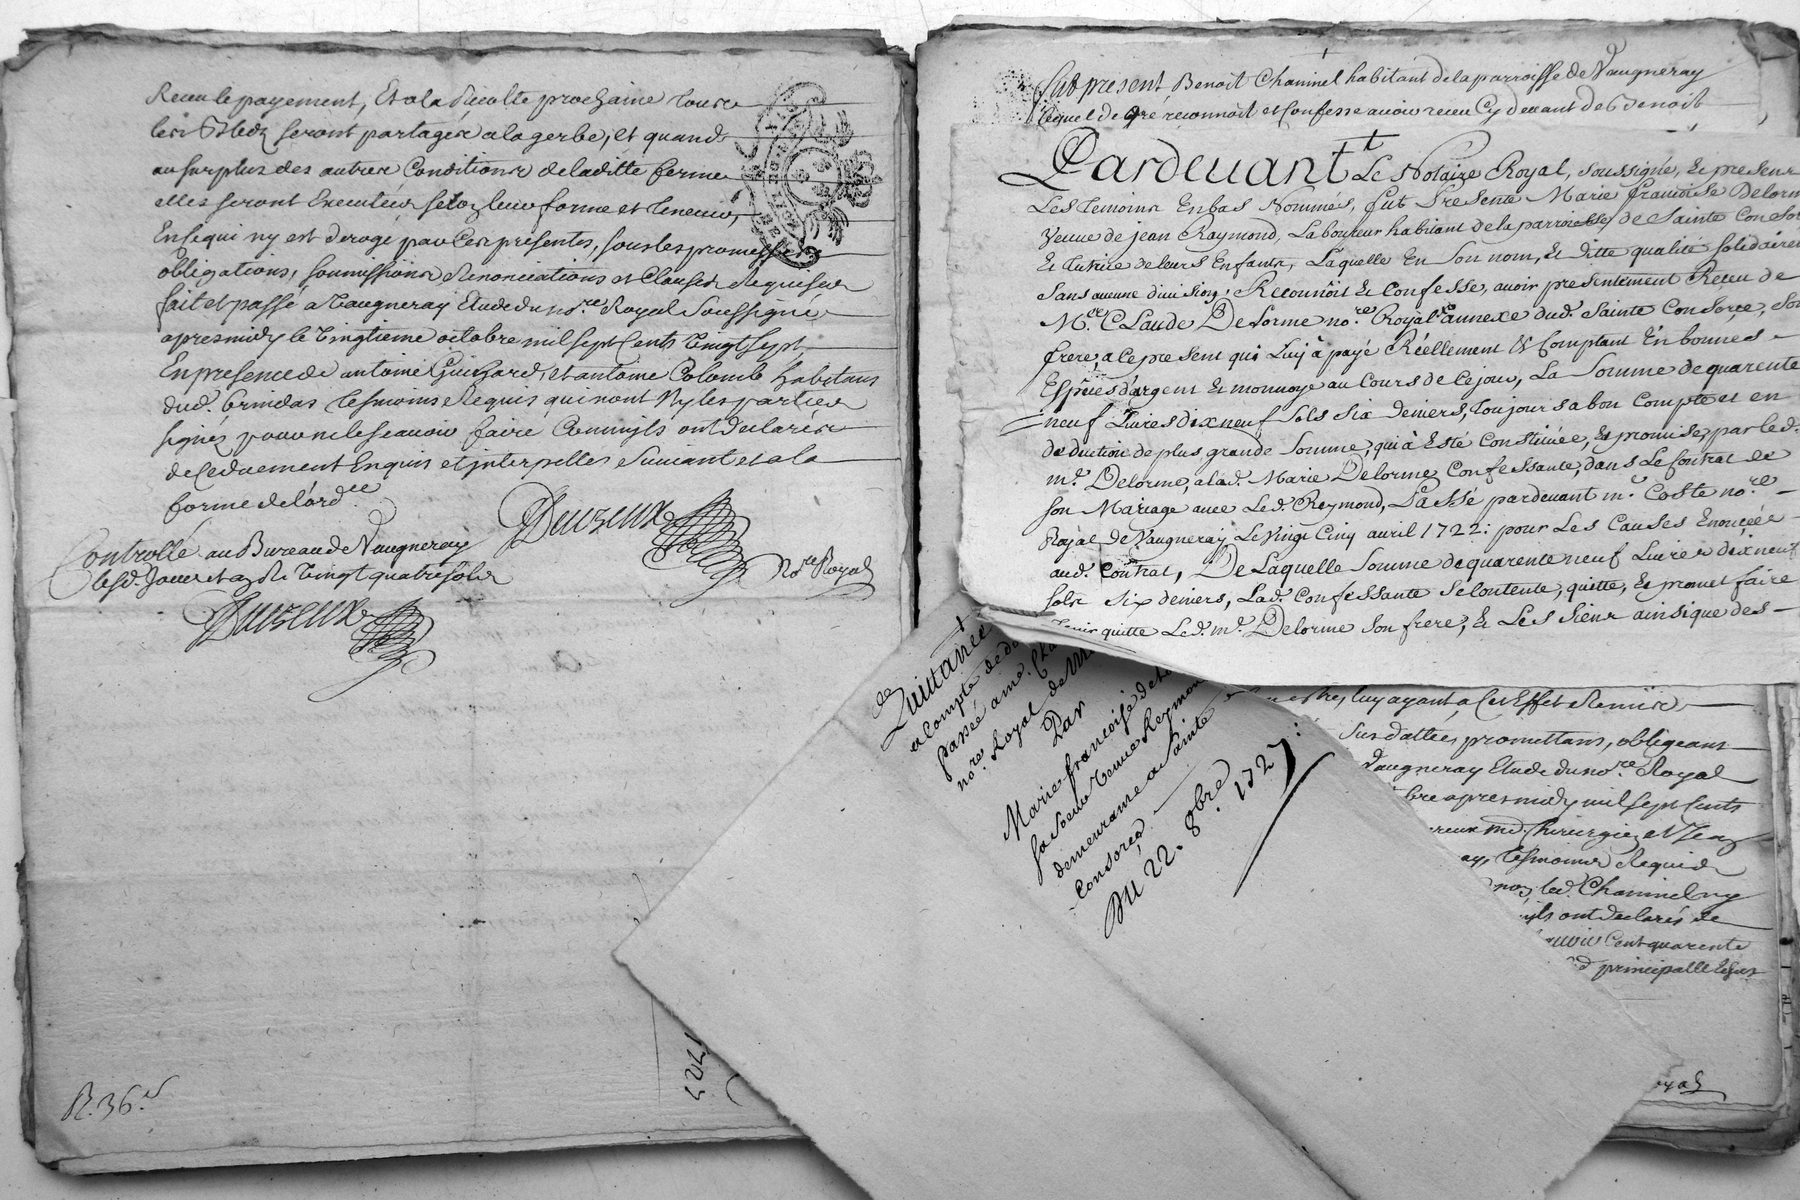 Receu le payement, Et a la Recolte prochaine Tous
les Bledz seront partagés a la gerbe, et quand
au surplus des autres Conditions de laditte ferme
elles seront Executées selon leur forme et teneur,
En ce qui n'y est derogé par Ces presentes, sous les promesses
obligations, soumissions Renonciations et Clauses Requises
fait et passé a Vaugneray Etude du nore. Royal soussigné
apres midy le Vingtieme octobre mil sept Cents Vingt sept
En presence de antoine Guizard, et antoine Colomb habitans
dud. Grindas tesmoins Requis qui n'ont Ny les parties
signés pour ne le sçavoir faire Comm'ils ont declarés
de Ce duement Enquis et interpellés suivant et a la
forme de l'ordce.
Deuzeux
Nore. Royal
Controllé au Bureau de Vaugneray
led. Jour Vingt quatre sols
Duzeux
R. 36.s
1727
Fut present Benoit Chaninel habitant de la parroisse de Vaugneray
Lequel de gré reconnoit et Confesse avoir receu Cy devant de Benoit
Pardevant Le Notaire Royal, soussigné, Et present
Les temoins En bas Nommés, fut Presente Marie Françoise Delorm
Veuve de jean Raymond, Laboureur habitant de la parroisse de Sainte Consor
Et tutrice de leurs Enfants, Laquelle En Son nom, Et ditte qualité solidairem
sans aucune division, Reconnoit Et Confesse, avoir presentement Receu de
Mre. Claude Delorme nore. Royal annexe dud. Sainte Consorce, son
frere, a ce present qui Luy à payé Réellement Et Comptant En bonnes
Espèces d'argent Et monnoye au Cours de Ce jour, La Somme de quarente
neuf Livres dix neuf sols six deniers, toujours a bon Compte et en
deduction de plus grande somme, qui à Esté Constituée, Et promise, par led.
mr. Delorme, a lad. Marie Delorme Confessante, dans Le Contrat de
son Mariage avec Led. Reymond, Passé pardevant mr. Coste nore.
Royal de Vaugneray, Le Vingt Cinq avril 1722: pour Les Causes Enoncées
aud. Contrat, De Laquelle somme de quarente neuf Livres dix neuf
sols six deniers, Lad. Confessante se Contente, quitte, Et promet faire
tenir quitte Led. mr. Delorme son frere, Et Les siens ainsi que des
Quittance
a Compte de
passée a me. Cla
nore. Royal de
Par
Marie françoise de
sa soeur veuve Reymon
demeurante a Sainte
Consorce
Du 22. 8bre. 1727:
luy ayant a Cet Effet Remis
Susdattée, promettans, obligeans
Vaugneray Etude du nore. Royal
bre apres midy mil sept Cents
md. Chirurgien et Jean
ay, tesmoins Requis
led. Chaninel ny
ils ont declarés de
Cent quarente
principalle
oyal